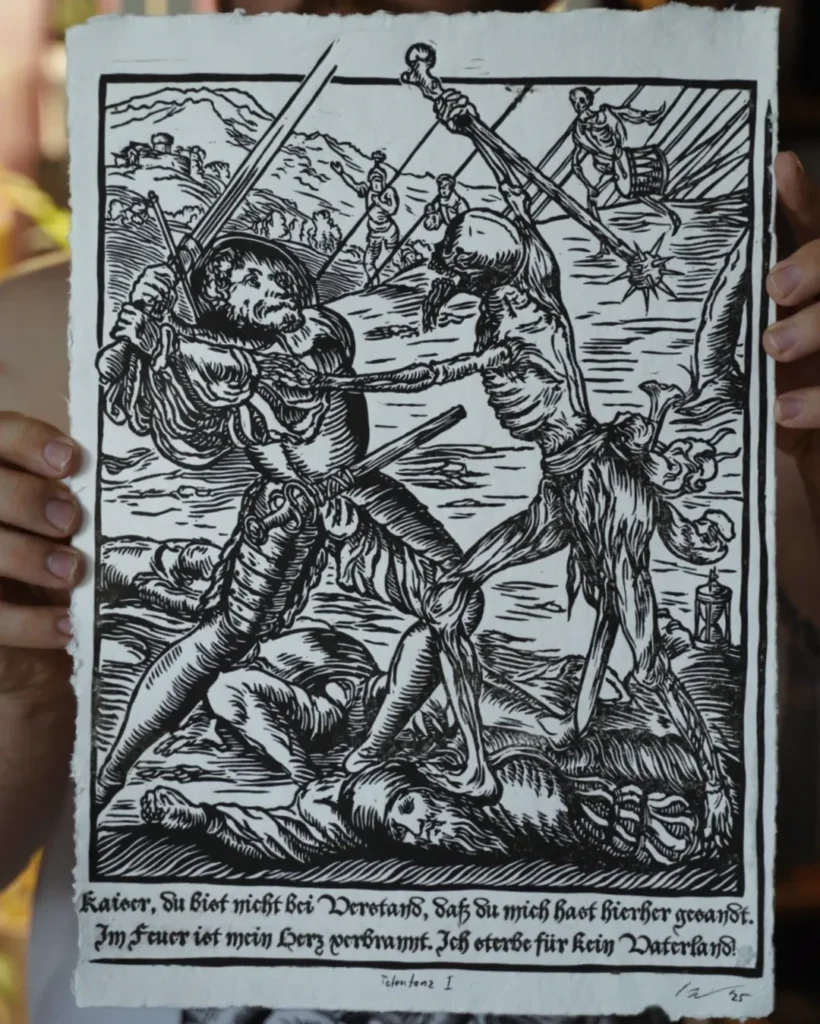 Kaiser, du bist nicht bei Verstand, daß du mich hast hierher gesandt.
Im Feuer ist mein Herz verbrannt. Ich sterbe für kein Vaterland!
Totentanz I
25